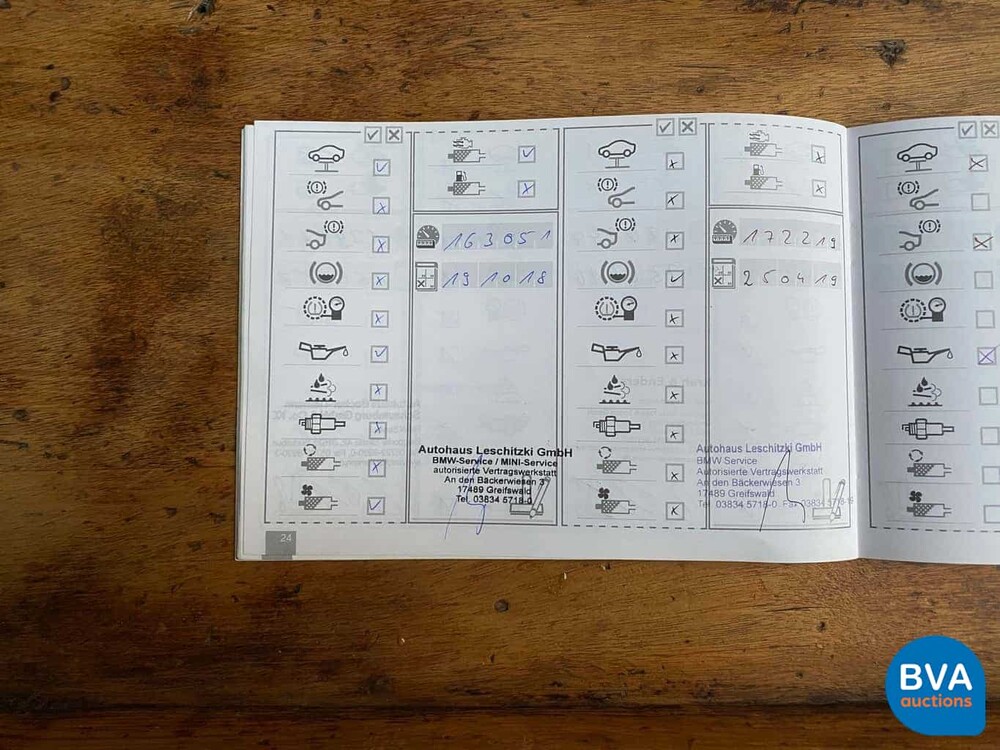 163051
191018
Autohaus Leschitzki GmbH
BMW-Service / MINI-Service
autorisierte Vertragswerkstatt
An den Bäckerwiesen 3
17489 Greifswald
Tel. 03834 5718-0
24
172219
250419
Autohaus Leschitzki GmbH
BMW Service
Autorisierte Vertragswerkstatt
An den Bäckerwiesen 3
17489 Greifswald
Tel 03834 5718-0 Fax 03834 5718-16
BVA
auctions